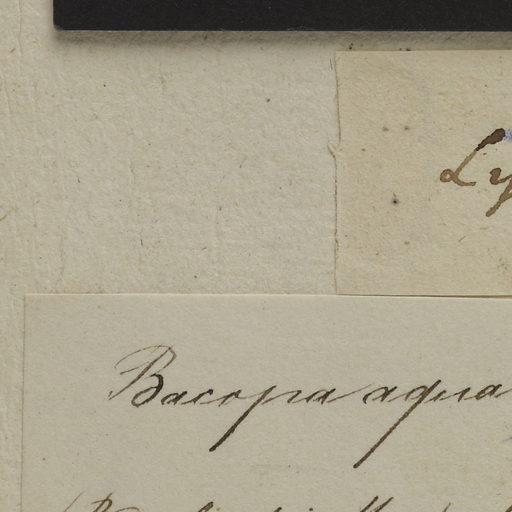 Ly
Bacopa aqua